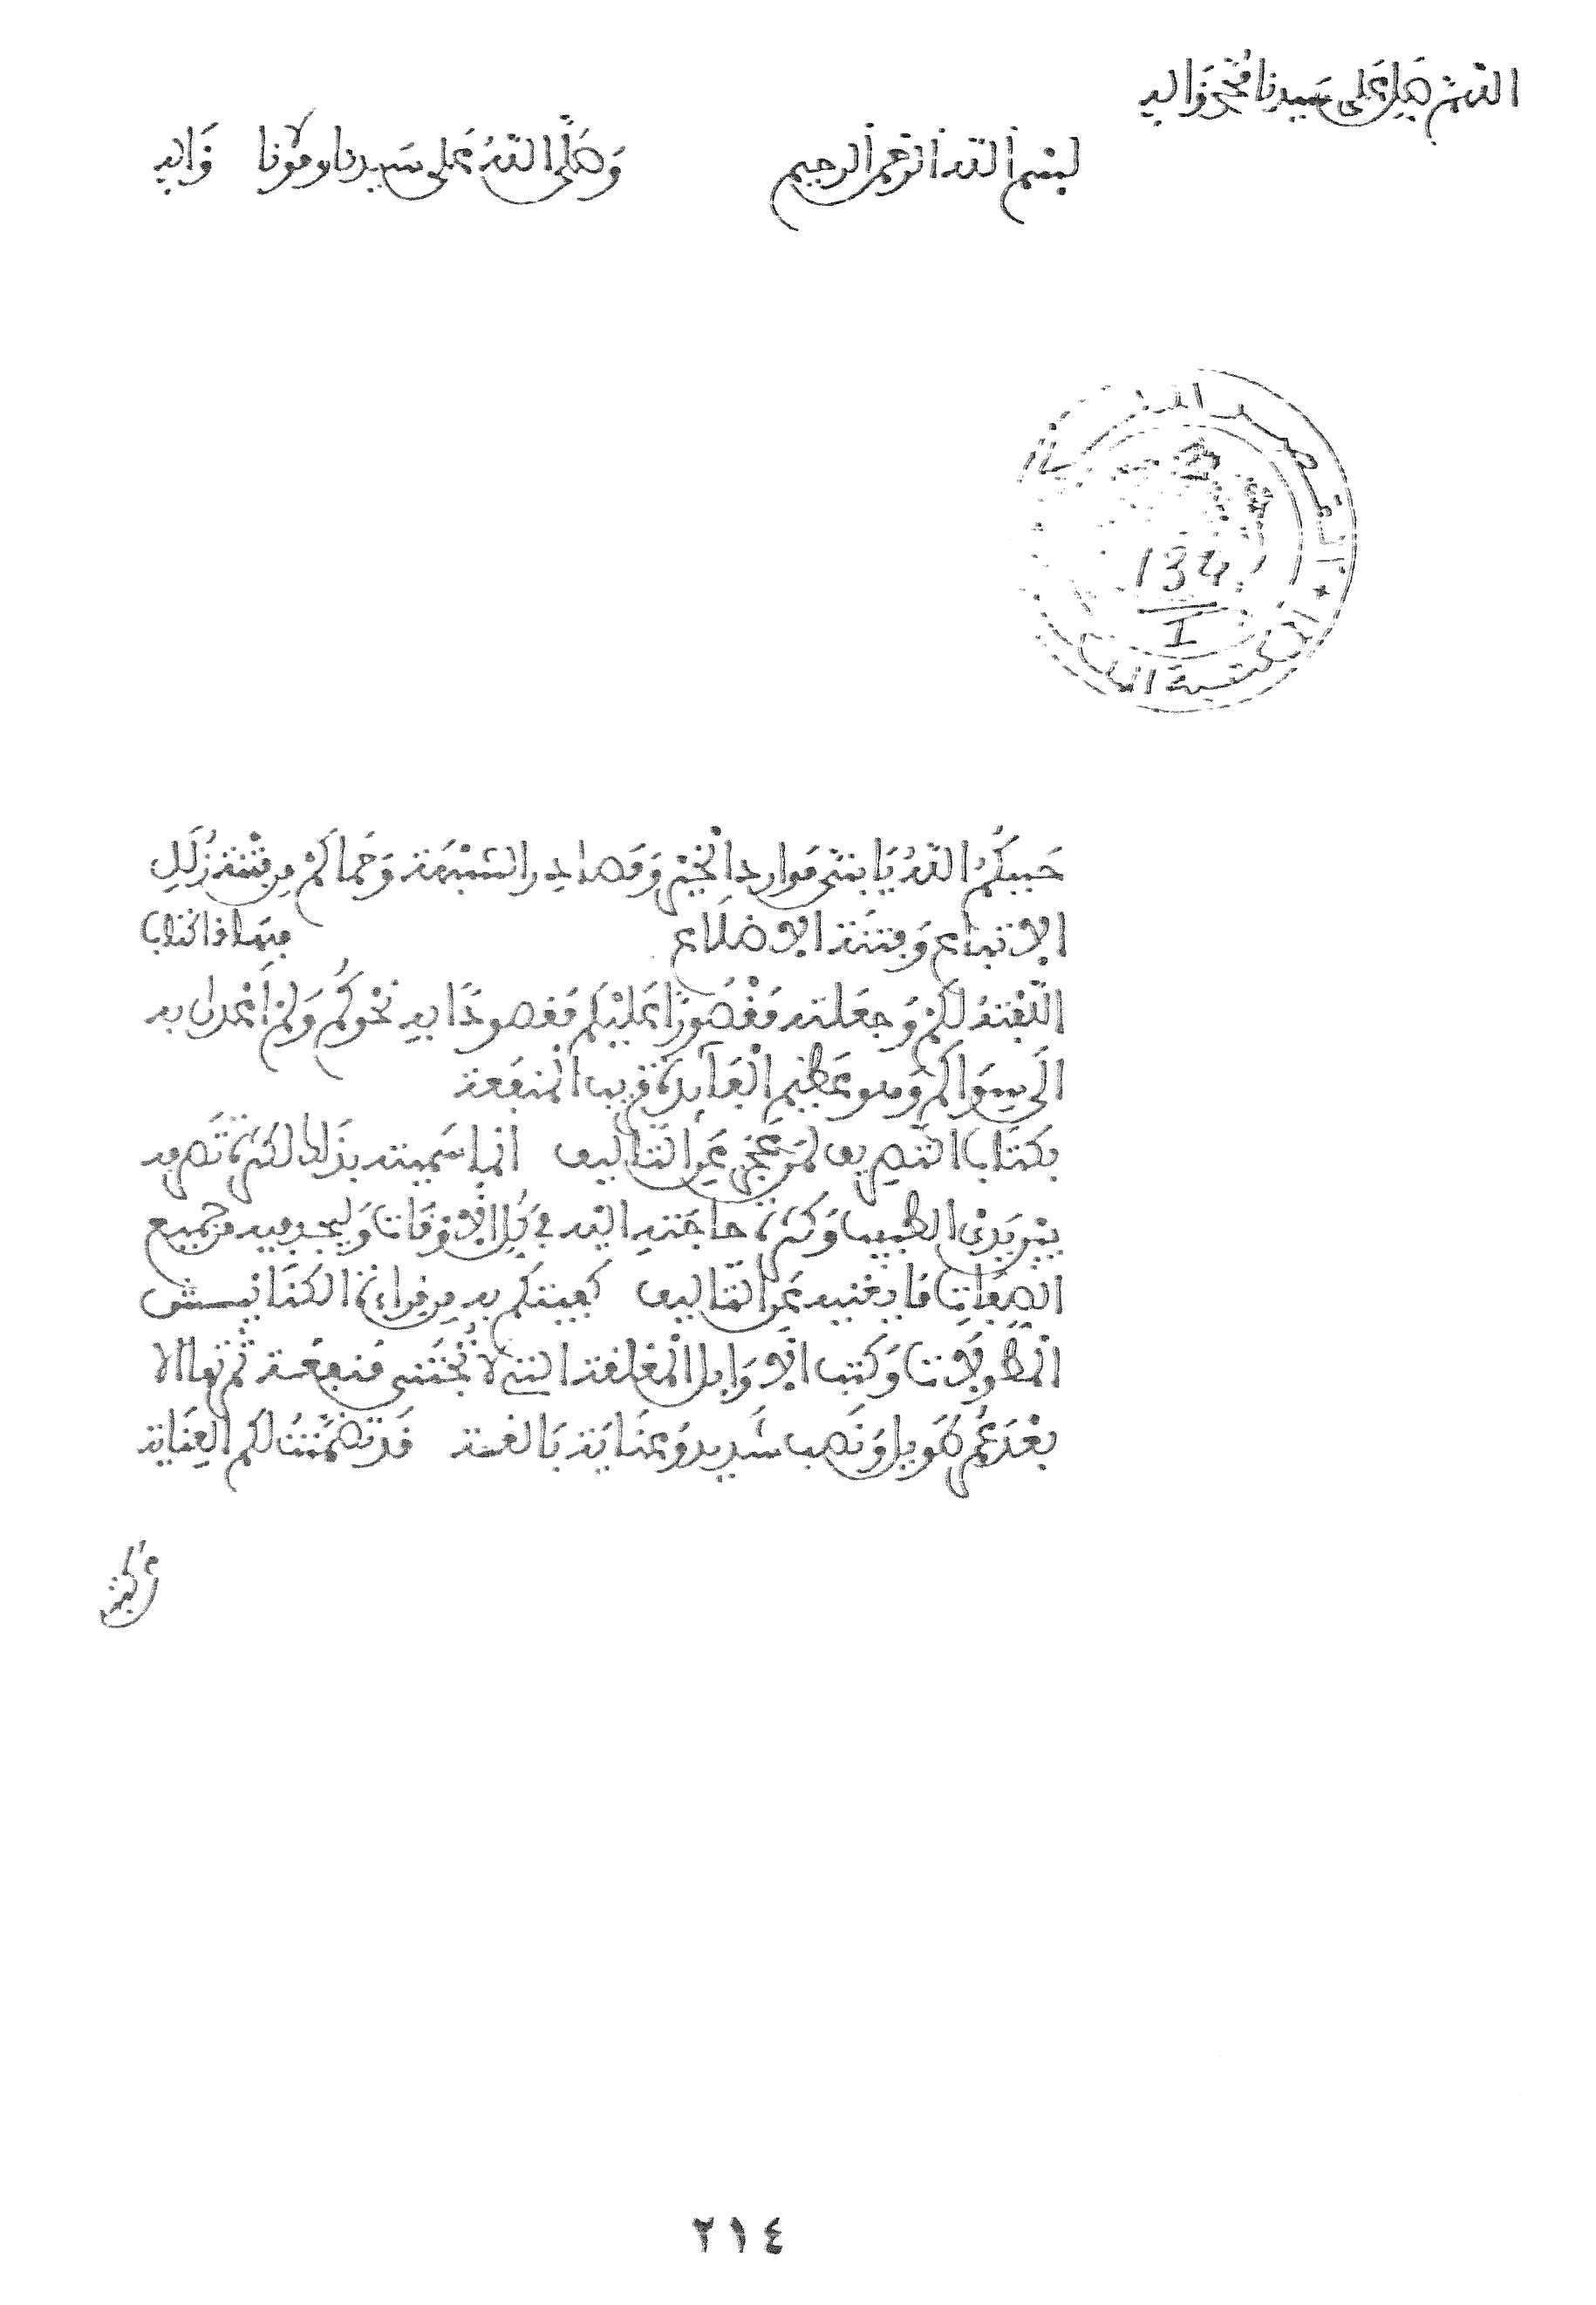 اللهم صل على سيدنا محمد وءاله
بسم الله الرحمن الرحيم وصلى الله على سيدنا ومولانا وءاله
الله يا بني موارد الحيرة ومصادر الشبهة وحماكم من فتنة زلل
الاتباع وفتنة الاضلاع فهذا كتاب
الفته لكم وجعلته مقصورا عليكم مقصودا به نحوكم ولم اعدل به
الى سواكم وهو عظيم الفايدة قريب المنفعة
بكتاب التصريف لمن عجز عن التاليف انما سميته بذلك لكثرة تصرفه
بين يدي الطبيب وكثرة حاجته اليه في كل الاوقات وليجد فيه من جميع
الصفات ما يغنيه عن التاليف كفيتكم به من قراءة الكنانيش
المطولات وكتب الاوايل المغلقة التي لا تجتنى منفعة ثمرتها الا
بعد عمر طويل ونصب شديد وعناية بالغة قد تضمنت لكم العناية
134
I
المكتبة
٢١٤